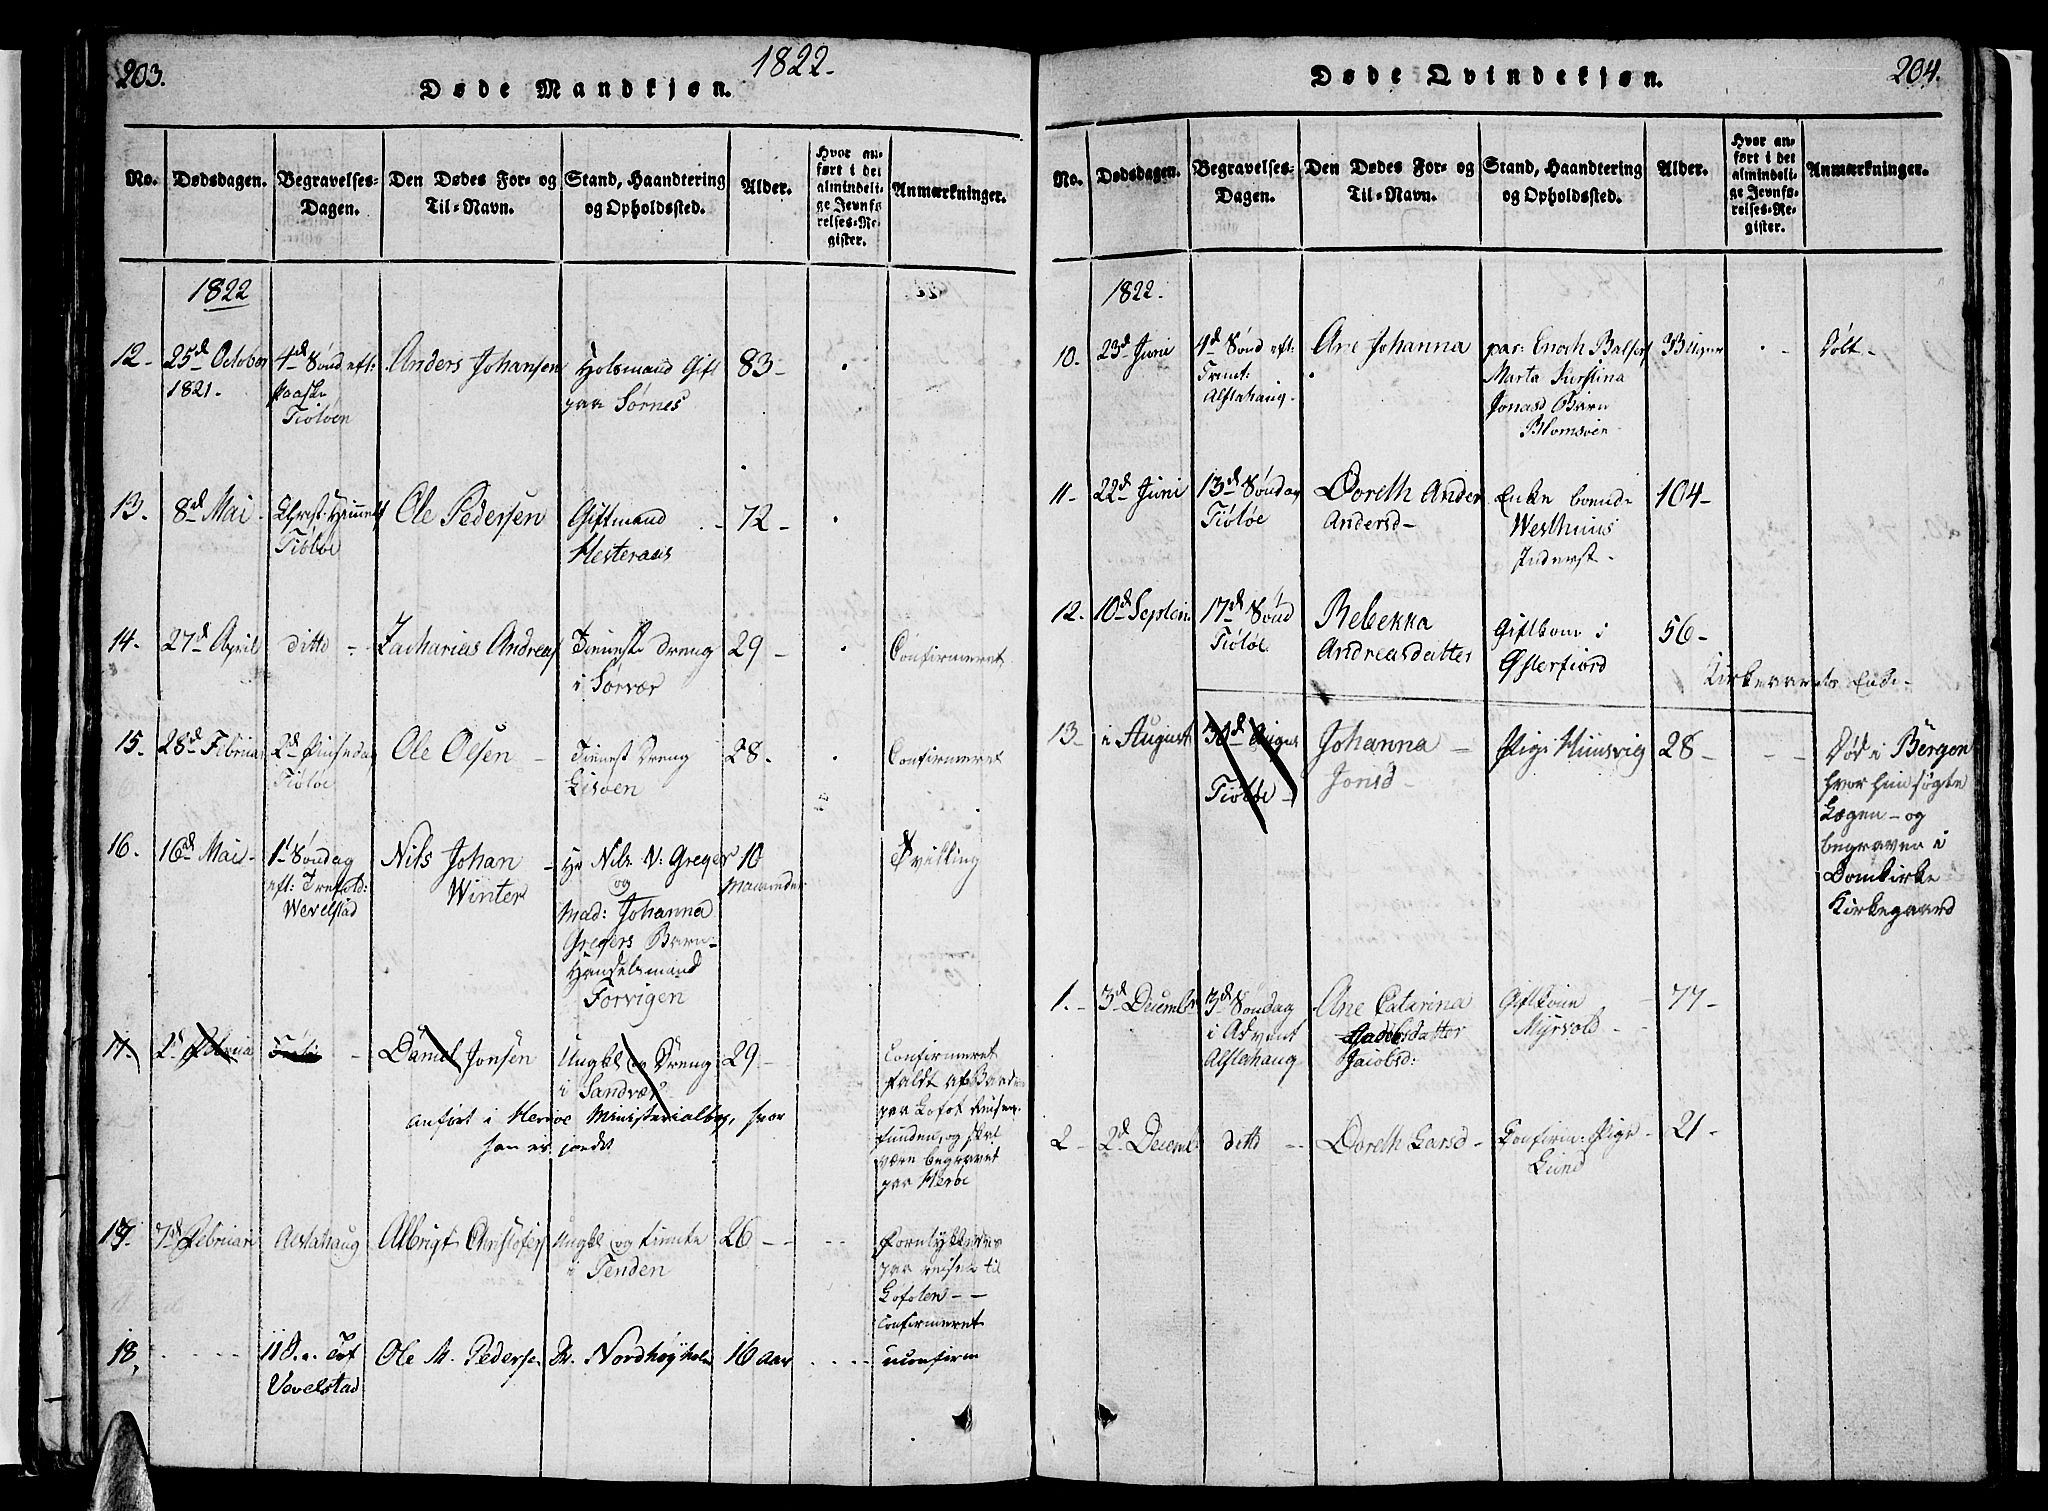 203.
1822.
Døde Mandkjøn.
No.
Dødsdagen.
Begravelses-
Dagen.
Den Dødes For- og
Til-Navn.
Stand, Haandtering
og Opholdssted.
Alder.
Hvor an-
ført i det
almindeli-
ge Jevnfø-
relses-Re-
gister.
Anmærkninger.
1822
12-
25d October
1821.
4d Sønd eft:
Paaske
Tiøtøen
Anders Johansen
Holsmand Gift
paa Sørnes
83-
13.
8d Mai
Christ: Himmelf
Tiøtøe
Ole Pedersen
Giftmand
Hesteraas
72-
14.
27d April
ditto
Zacharias Andreas
Tieneste Dreng
i Sørvær
29-
Confirmeret
15.
28d Februar
2d Pinsedag
Tiøtøe
Ole Olsen
Tienest Dreng
28.
Confirmeret
16.
16d Mai-
1d Søndag
eft: Trefold:
Wevelstad
Nils Johan
Winter
Hr Nils W: Greger
og
Mad: Johanna
Gregers Barn-
Handelsmand
Forvigen
10
Maaneder
Tvilling
17
2d Februa
Daniel Jonsen
Ungkl og Dreng
i Sandvær
29-
Confirmeret
faldt af Baaden
paa Lofot Reisen,
funden, og skal
være begravet
paa Herøe
anført i Herøe Ministerialbog, hvor
han er jordet
17.
7d Februari
Alstahaug
Albrigt Christofers
Ungkl og tiente
i Tenden
26-
Forulykkedes
paa reisen til
Lofoten--
Confirmeret
18,
11 S. e. Tref
Vevelstad
Ole M. Pederse
Dr. Nordhøyholm
16 aar
uconfirm
204.
Døde Qvindekjøn.
No.
Dødsdagen.
Begravelses-
Dagen.
Den Dødes For- og
Til-Navn.
Stand, Haandtering
og Opholdssted.
Alder.
Hvor an-
ført i det
almindeli-
ge Jevnfø-
relses-Re-
gister.
Anmærkninger.
1822.
10.
23d Juni
4d Sønd eft:
Trinit:
Alstahaug-
Ane Johanna
par: Enoch Balsers
Marta Kirstina
Jonasd Barn
Blomsøen
3 Uger
Døbt-
11-
22d Juni
13d Søndag
Tiøtøe
Doreth Ander
Andersd-
Enke boende
Westhuus
Inderst-
104-
12.
10d Septem
17d Sønd
Tiøtøe
Rebekka
Andreasdatter
Giftkone i
Østerfiord
56-
Kirkeaarets Ende-
13-
i August
30d August
Tiøtøe-
Johanna-
Jonsd-
Pige
28-
Død i Bergen
hvor hun søgte
Lægen-og
begraven i
Domkirke
Kirkegaard
1.-
3d Decembr
3d Søndag
i Advent
Alstahaug
Ane Catarina
Jacobsdatter
Jacobsd:
Giftkone
Myrvold-
77-
2-
2d Decemb
ditto
Doreth Larsd-
Confirm: Pige
Lund
21-